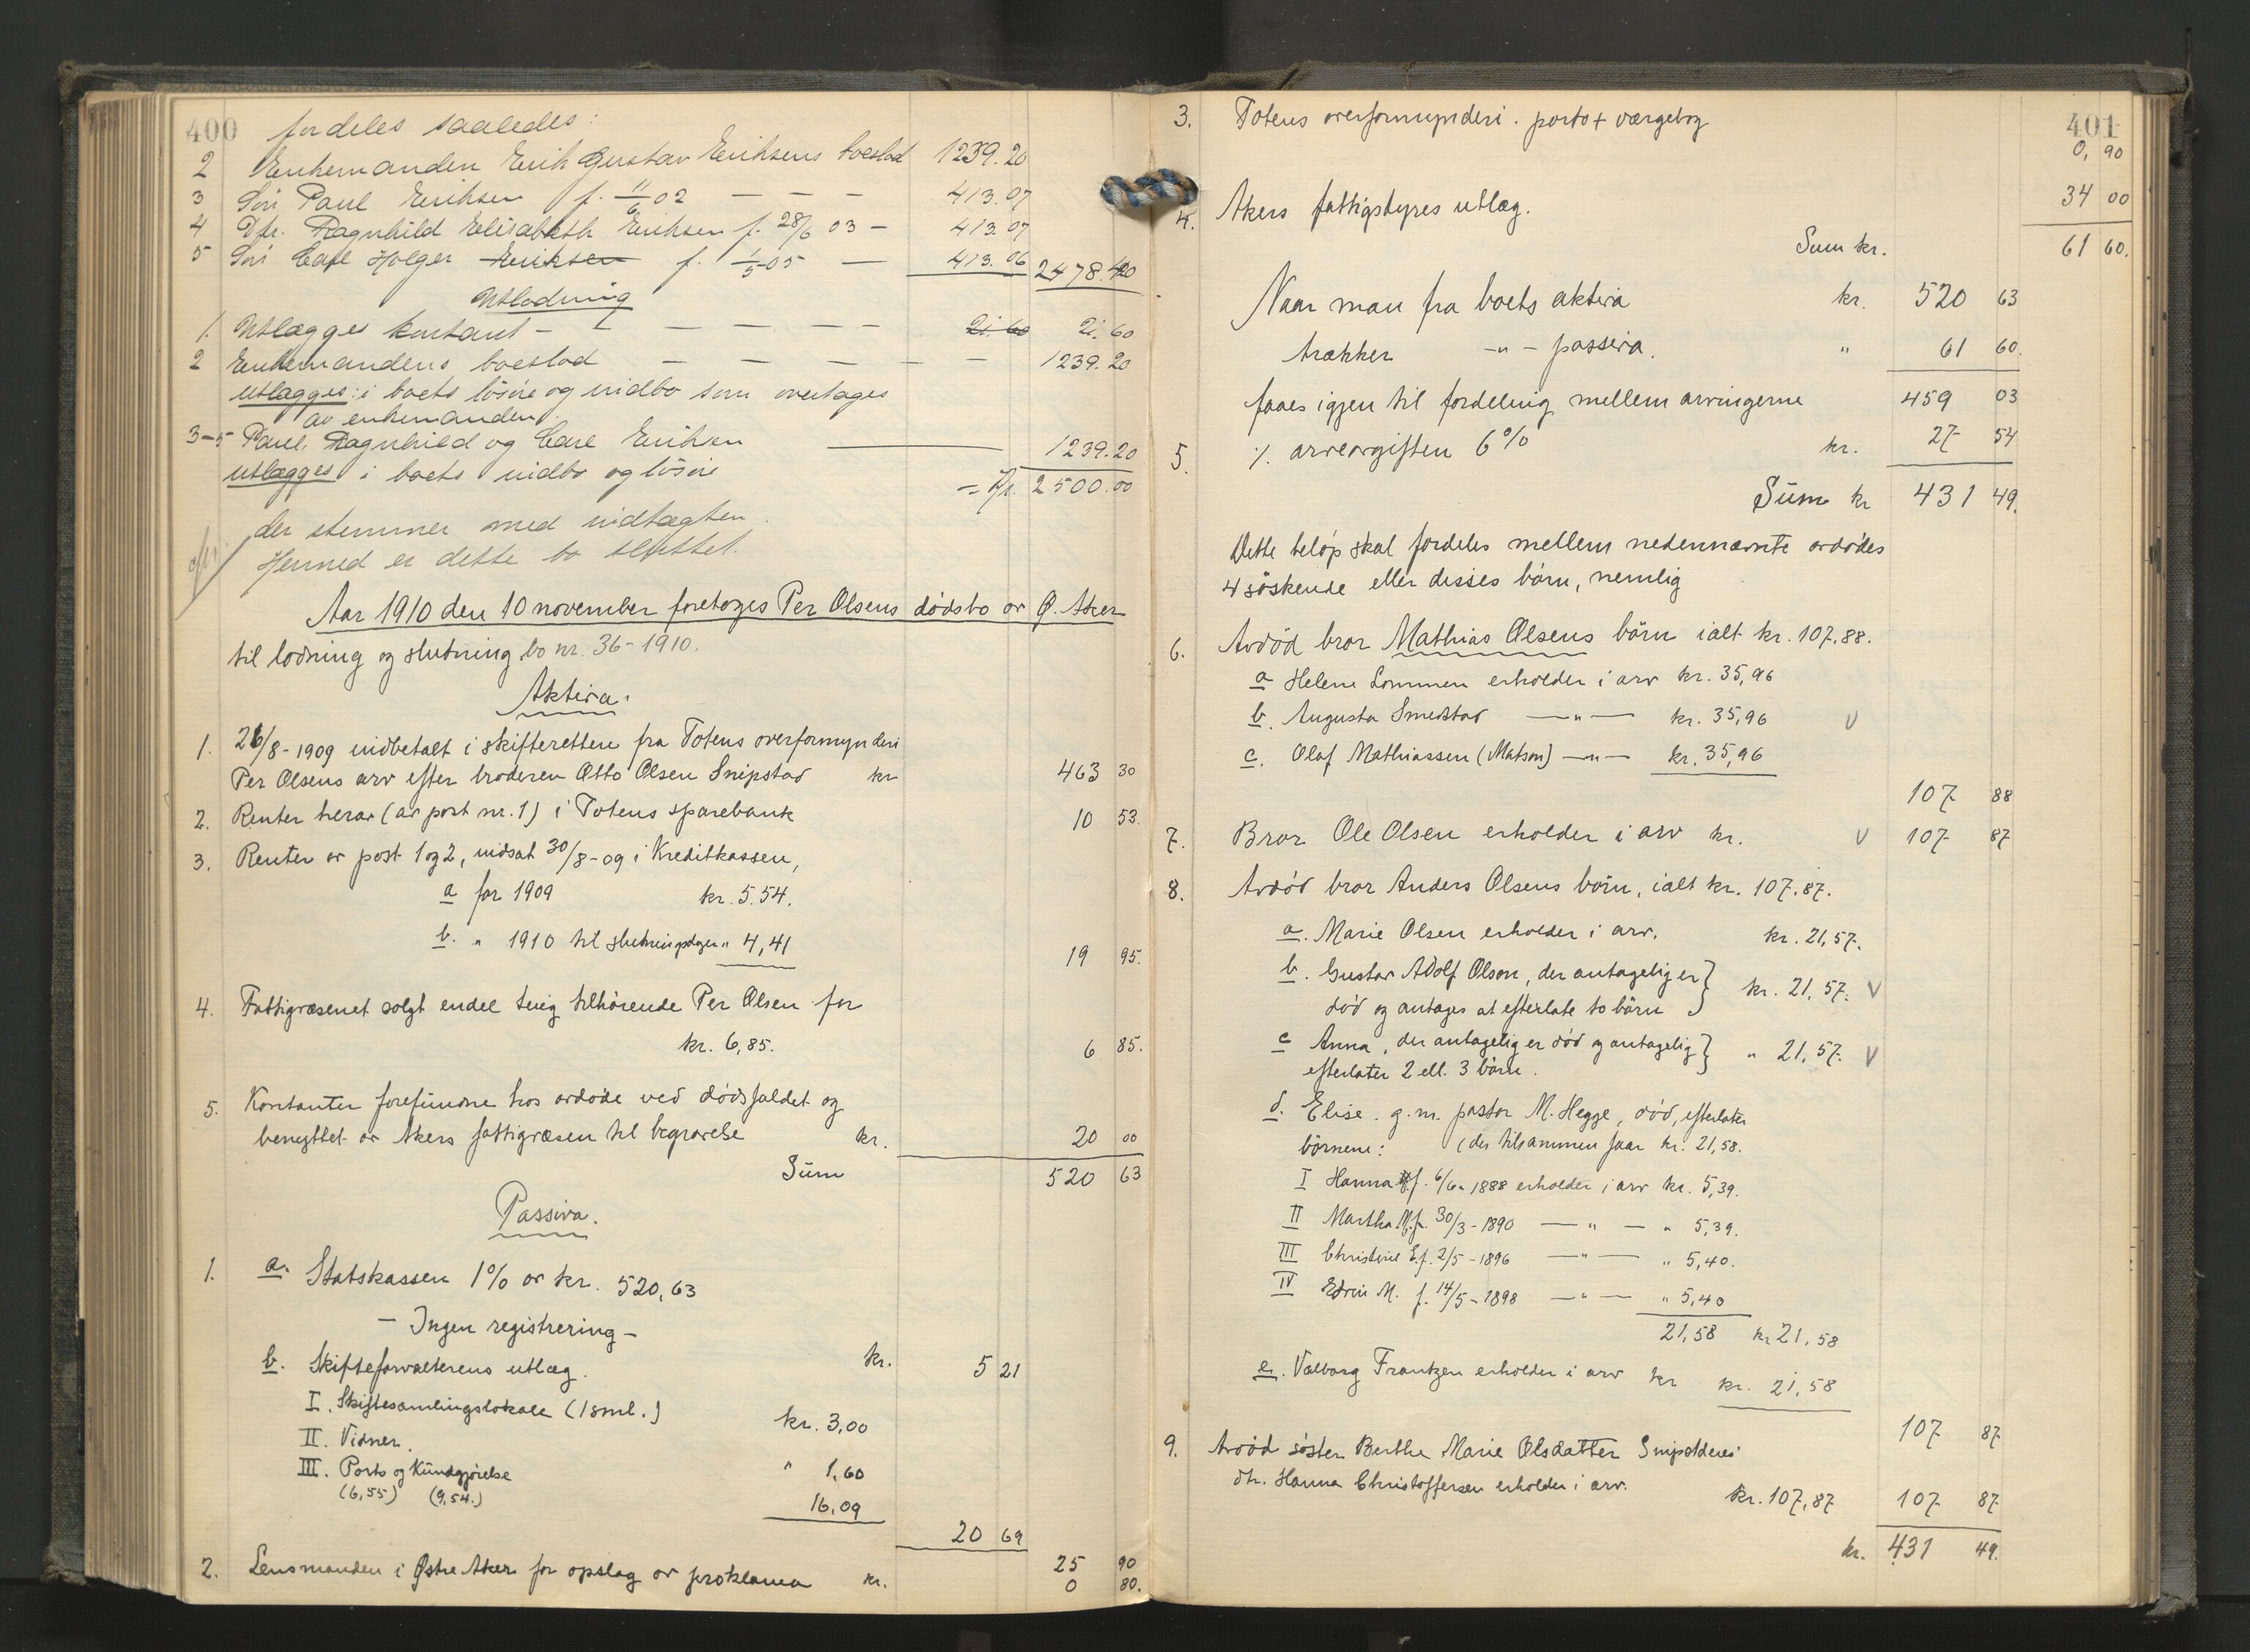 400 fordeles saaledes:
2 Enkemanden Erik Gustav Eriksens boeslod 1239.20
3 Søn Paul Eriksen f. 11/6 02 — — — 413.07
4 Dtr. Ragnhild Elisabeth Eriksen f. 28/6 03 — 413.07
5 Søn Carl Holger Eriksen f. 1/5 05 — 413.06 2478.40
Utlodning
1. Utlægges kontant — — — — — — 21.60 21.60
2 Enkemandens boeslod — — — — — 1239.20
utlægges: i boets løsøre og indbo som overtages
av enkemanden.
3-5 Paul, Ragnhild og Carl Eriksen 1239.20
utlægges i boets indbo og løsøre
= Kr. 2500.00
der stemmer med indtægten.
Hermed er dette bo sluttet.
Aar 1910 den 10 november foretoges Per Olsens dødsbo av Ø. Aker
til lodning og slutning, bo nr. 36-1910.
Aktiva.
1. 26/8-1909 indbetalt i skifteretten fra Totens overformynderi
Per Olsens arv efter broderen Otto Olsen Snipstad kr 463 30
2. Renter herav (av post nr. 1) i Totens sparebank 10 53.
3. Renter av post 1 og 2, indsat 30/8-09 i Kreditkassen,
a for 1909 kr. 5.54.
b. " 1910 til slutningsdagen " 4,41
19 95.
4. Fattigvæsenet solgt endel tøig tilhørende Per Olsen for
kr. 6,85. 6 85.
5. Kontanter forefundne hos avdøde ved dødsfaldet og
benyttet av Akers fattigvæsen til begravelse kr. 20 00
Sum 520 63
Passiva.
1. a. Statskassen 1% av kr. 520,63
- Ingen registrering -
kr. 5 21
b. Skifteforvalterens utlæg.
I. Skiftesamlingslokale (1 sml.) kr. 3,00
II. Vidner. " 1,60
III. Porto og Kundgjørelse
(6,55) (9,54.) 16,09
20 69
25 90
2. Lensmanden i Østre Aker for opslag av proklama kr. 0 80.
401
3. Totens overformynderi. porto + værgebog 0, 90
4. Akers fattigstyres utlæg. 34 00
Sum kr. 61 60.
Naar man fra boets aktiva kr. 520 63
trækker -"- passiva. " 61 60.
faaes igjen til fordeling mellem arvingerne 459 03
5. ÷ arveavgiften 6% kr. 27 54
Sum kr 431 49.
Dette beløp skal fordeles mellem nedennævnte avdødes
4 søskende eller disses børn, nemlig
6. Avdød bror Mathias Olsens børn ialt kr. 107,88.
a Helene Lommen erholder i arv kr. 35,96
b. Augusta Smedstad —"— kr. 35,96 V
c. Olaf Mathiassen (Matson) —"— kr. 35,96
107 88
7. Bror Ole Olsen erholder i arv kr. V 107 87
8. Avdød bror Anders Olsens børn, ialt kr. 107,87.
a. Marie Olsen erholder i arv. kr. 21,57.
b. Gustav Adolf Olson, der antagelig er } kr. 21,57. V
død og antages at efterlate to børn
c Anna, der antagelig er død og antagelig } " 21,57. V
efterlater 2 ell. 3 børn.
d. Elise. g.m. pastor M. Hegge, død, efterlater
børnene: (der tilsammen faar kr. 21,58.
I Hanna f. 6/6-1888 erholder i arv kr. 5,39.
II Martha M. f. 30/3-1890 — " — " 5,39.
III Christine E. f. 2/5-1896 —"— " 5,40.
IV Edvin M. f. 14/5-1898 —"— " 5,40
21,58 kr 21,58
e. Valborg Frantzen erholder i arv kr kr. 21,58
107 87
9. Avdød søster Berthe Marie Olsdatter
dtr. Hanna Christoffersen erholder i arv. kr. 107,87 107 87
kr. 431 49.